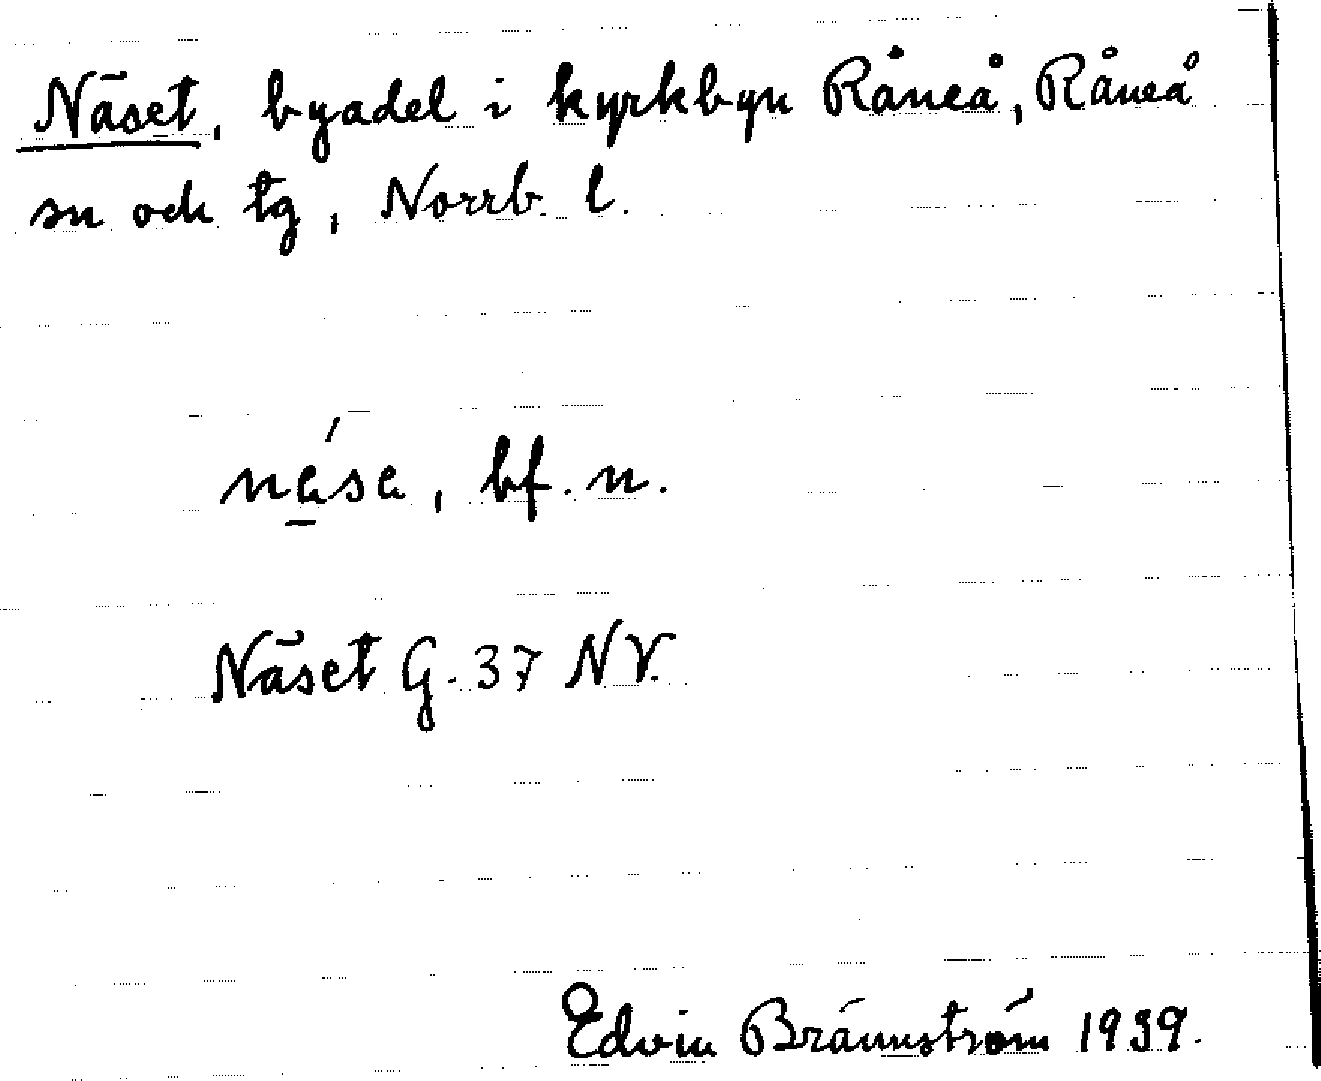 Näset, byadel i kyrkbyn Råneå, Råneå
sn och tg, Norrb. l.
nä̱́sa, bf. n.
Näset G. 37 NV.
Edvin Brännström 1939.